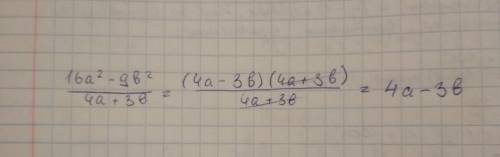 (16a² - 9в²)/(4a + 3в) = ((4a - 3в)(4a + 3в))/(4a + 3в) = 4a - 3в